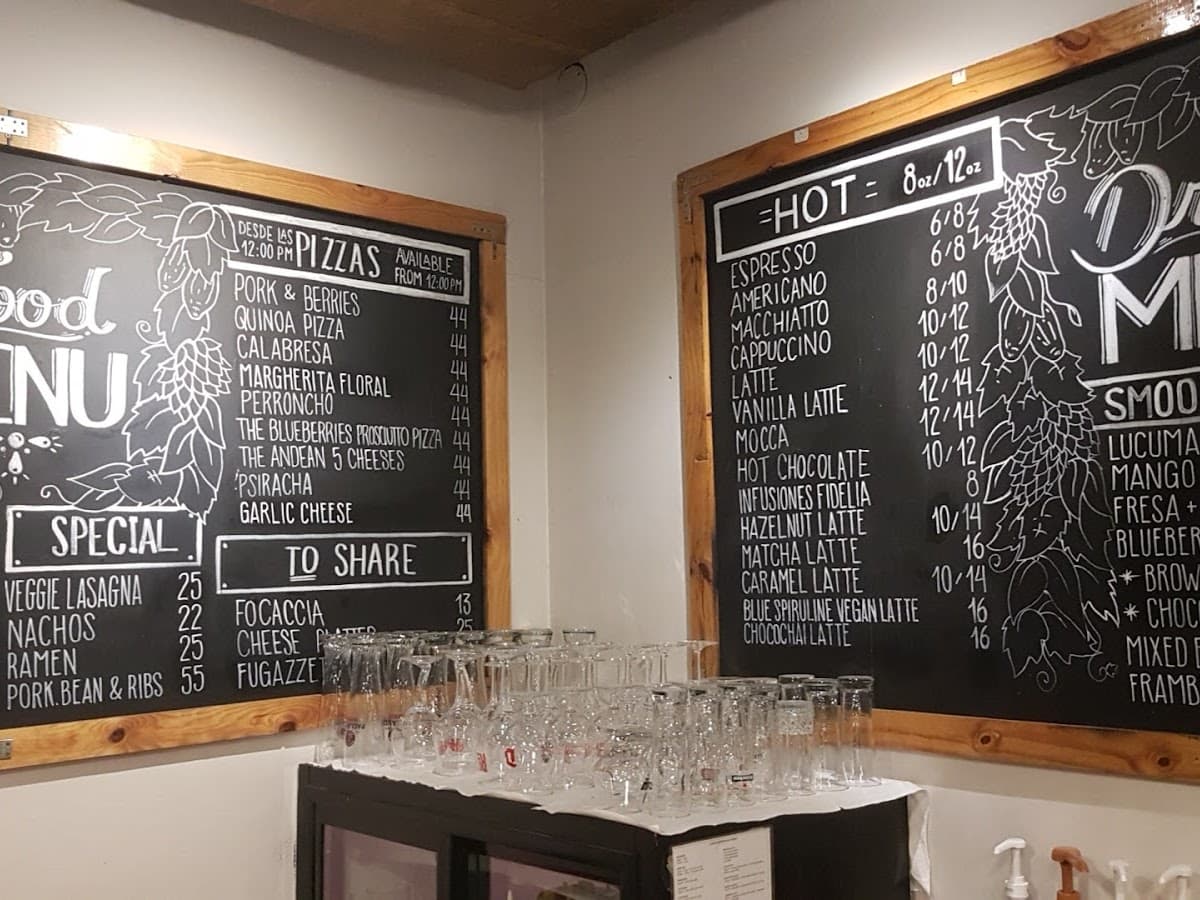 ood
ENU
SPECIAL
VEGGIE LASAGNA 25
NACHOS 22
RAMEN 25
PORK.BEAN & RIBS 55
DESDE LAS 12:00 PM PIZZAS AVAILABLE FROM 12:00PM
PORK & BERRIES 44
QUINOA PIZZA 44
CALABRESA 44
MARGHERITA FLORAL 44
PERRONCHO 44
THE BLUEBERRIES PROSCIUTTO PIZZA 44
THE ANDEAN 5 CHEESES 44
PSIRACHA 44
GARLIC CHEESE 44
TO SHARE
FOCACCIA 13
CHEESE 25
FUGAZZE
=HOT= 8oz/12oz
ESPRESSO 6/8
AMERICANO 6/8
MACCHIATTO 8/10
CAPPUCCINO 10/12
LATTE 10/12
VANILLA LATTE 12/14
MOCCA 12/14
HOT CHOCOLATE 10/12
INFUSIONES FIDELIA 8
HAZELNUT LATTE 10/14
MATCHA LATTE 16
CARAMEL LATTE 10/14
BLUE SPIRULINE VEGAN LATTE 16
CHOCOCHAI LATTE 16
Dr
M
SMOO
LUCUMA
MANGO
FRESA +
BLUEBER
* BROW
* CHOC
MIXED
FRAMB